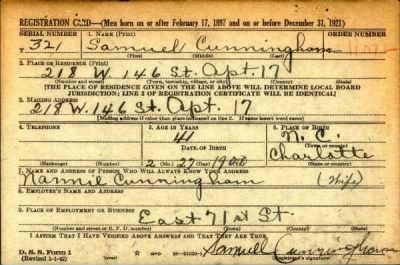 REGISTRATION CARD—(Men born on or after February 17, 1897 and on or before December 31, 1921)
SERIAL NUMBER 1. NAME (Print) ORDER NUMBER
T 321 Samuel Cunningham
(First) (Middle) (Last)
2. PLACE OF RESIDENCE (Print)
218 W. 146 St. Apt. 17
(Number and street) (Town, township, village, or city) (County) (State)
[THE PLACE OF RESIDENCE GIVEN ON THE LINE ABOVE WILL DETERMINE LOCAL BOARD
JURISDICTION; LINE 2 OF REGISTRATION CERTIFICATE WILL BE IDENTICAL]
3. MAILING ADDRESS
218 W. 146 St. Apt. 17
[Mailing address if other than place indicated on line 2. If same insert word same]
4. TELEPHONE 5. AGE IN YEARS 6. PLACE OF BIRTH
41 N. C.
DATE OF BIRTH
2 27 1900 Charlotte
(Exchange) (Number) (Mo.) (Day) (Yr.) (State or country)
7. NAME AND ADDRESS OF PERSON WHO WILL ALWAYS KNOW YOUR ADDRESS
Nannie Cunningham (Wife)
8. EMPLOYER'S NAME AND ADDRESS
9. PLACE OF EMPLOYMENT OR BUSINESS
East 71 st St.
(Number and street or R. F. D. number) (Town) (County) (State)
I AFFIRM THAT I HAVE VERIFIED ABOVE ANSWERS AND THAT THEY ARE TRUE.
D. S. S. Form 1 Samuel Cunningham
(Revised 1-1-42) GPO (Registrant's signature)